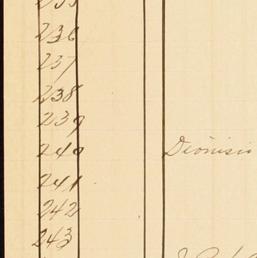 235
236
237
238
239
240 Dionisio
241
242
243